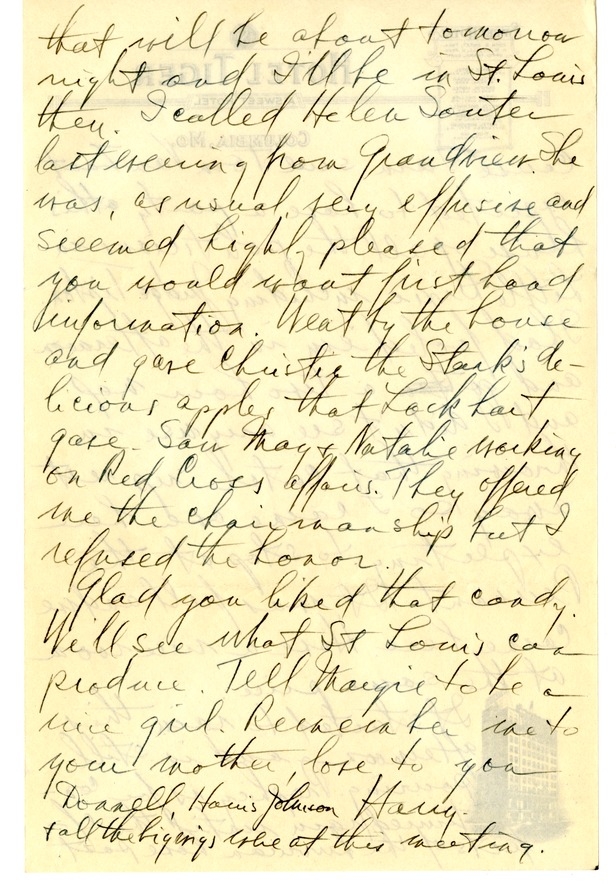 that will be about tomorrow
night and I'll be in St. Louis
then. I called Helen Souter
last evening from Grandview. She
was, as usual, very effusive and
seeemed highly pleased that
you would want first hand
information. Went by the house
and gave Christie the Stark's de-
licious apples that Lockhart
gave. Saw May & Natalie working
on Red Cross affairs. They offered
me the chairmanship but I
refused the honor.
Glad you liked that candy.
We'll see what St Louis can
produce. Tell Margie to be a
nice girl. Remember me to
your mother, love to you
Harry.
Donnell, Harris Johnson
& all the bigwigs were at this meeting.
HOTEL TIGER
COLUMBIA, MO.